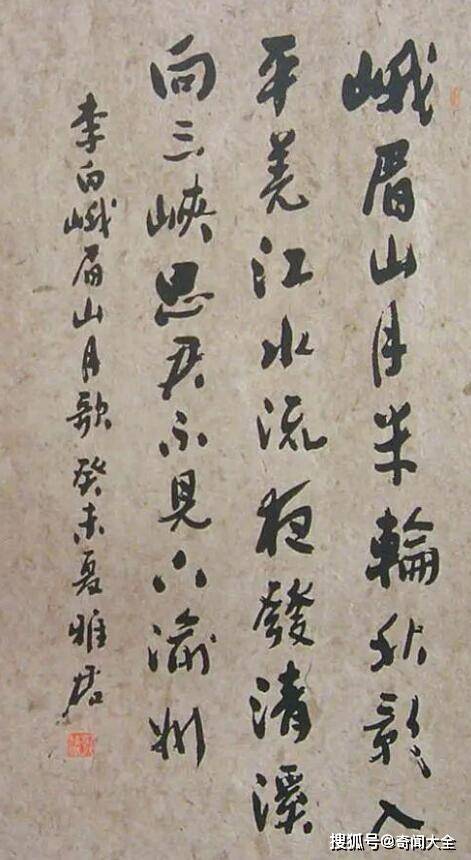 峨眉山月半輪秋影入
平羌江水流夜發清溪
向三峽思君不見下渝州
李白峨眉山月歌癸未夏雅君
搜狐号@奇闻大全